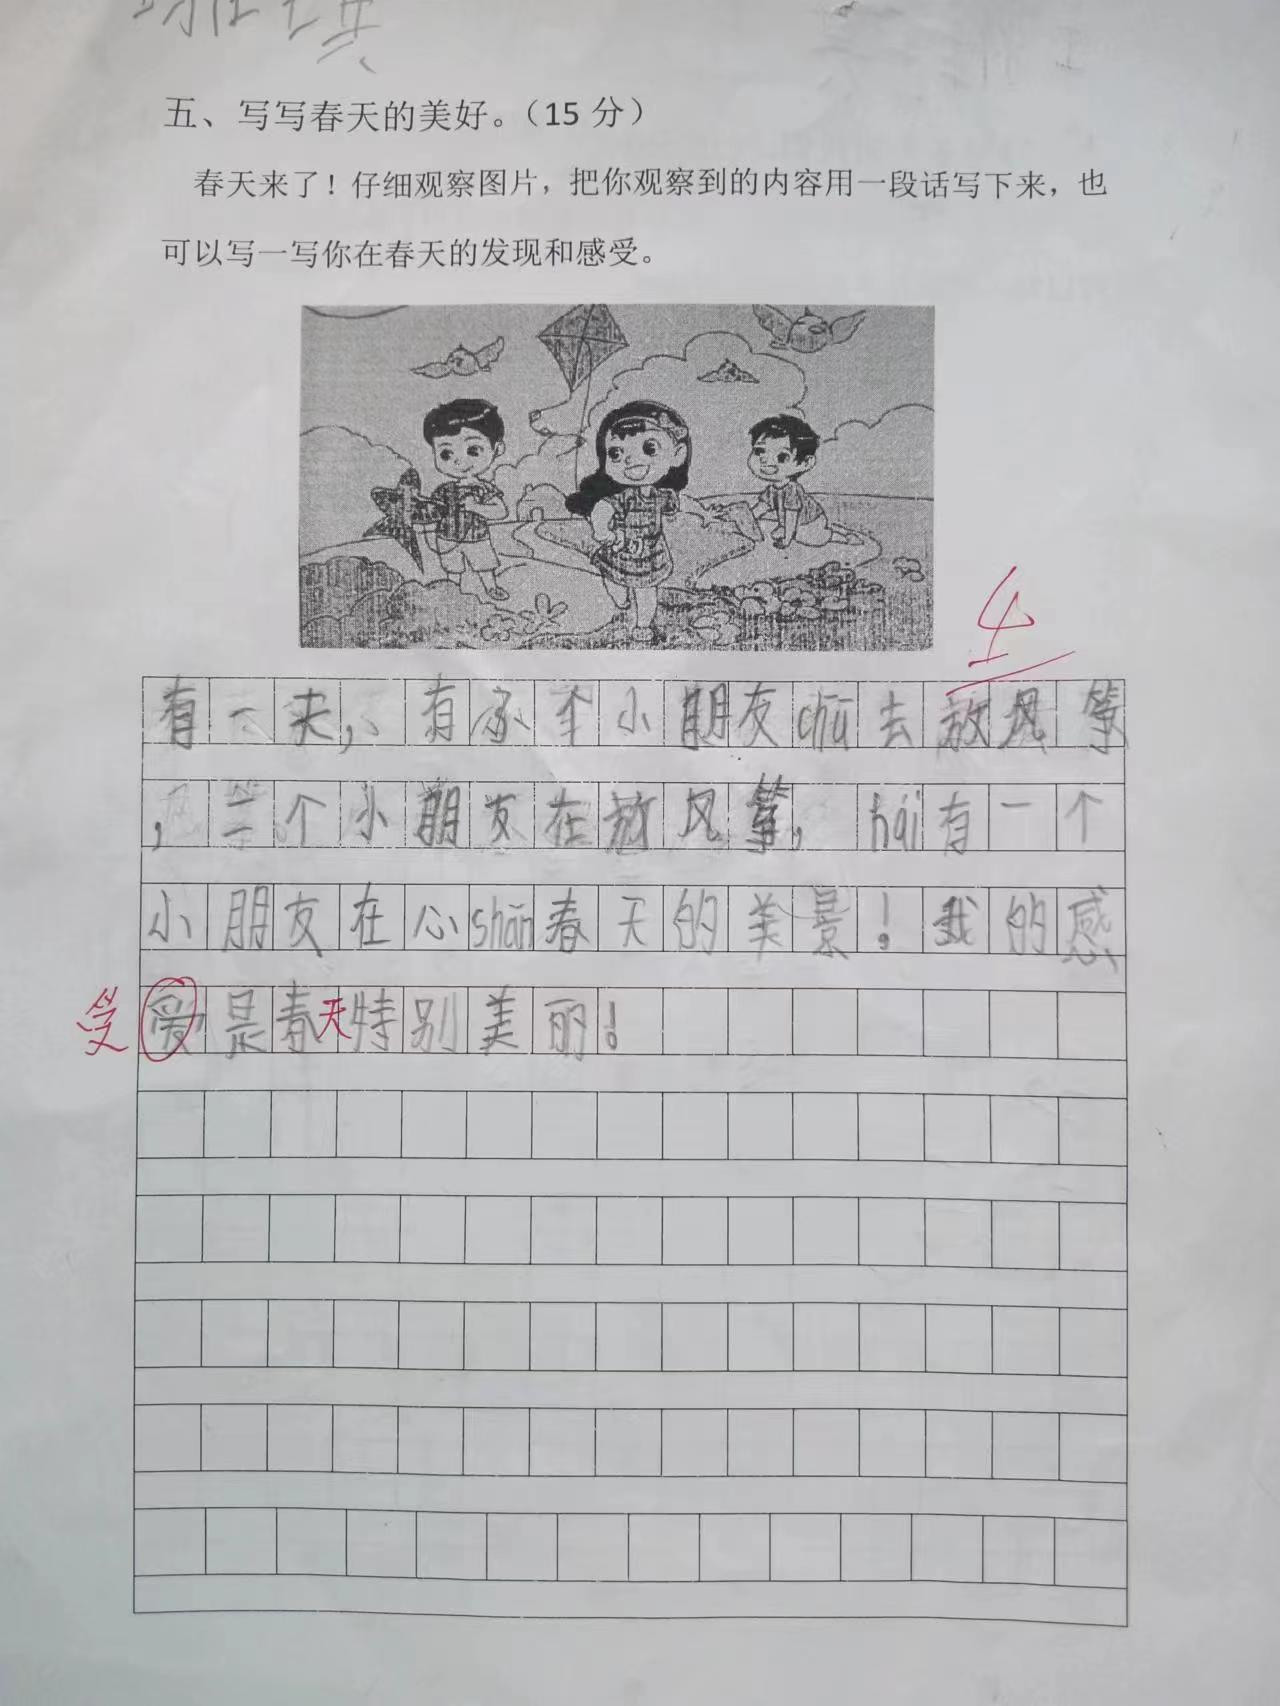 五、写写春天的美好。（15 分）
春天来了！仔细观察图片，把你观察到的内容用一段话写下来，也
可以写一写你在春天的发现和感受。
有一天，有 个小朋友chū去放风筝
，二个小朋友在放风筝，hái有一个
小朋友在心shǎn春天的美景！我的感
受 爱是春天特别美丽！